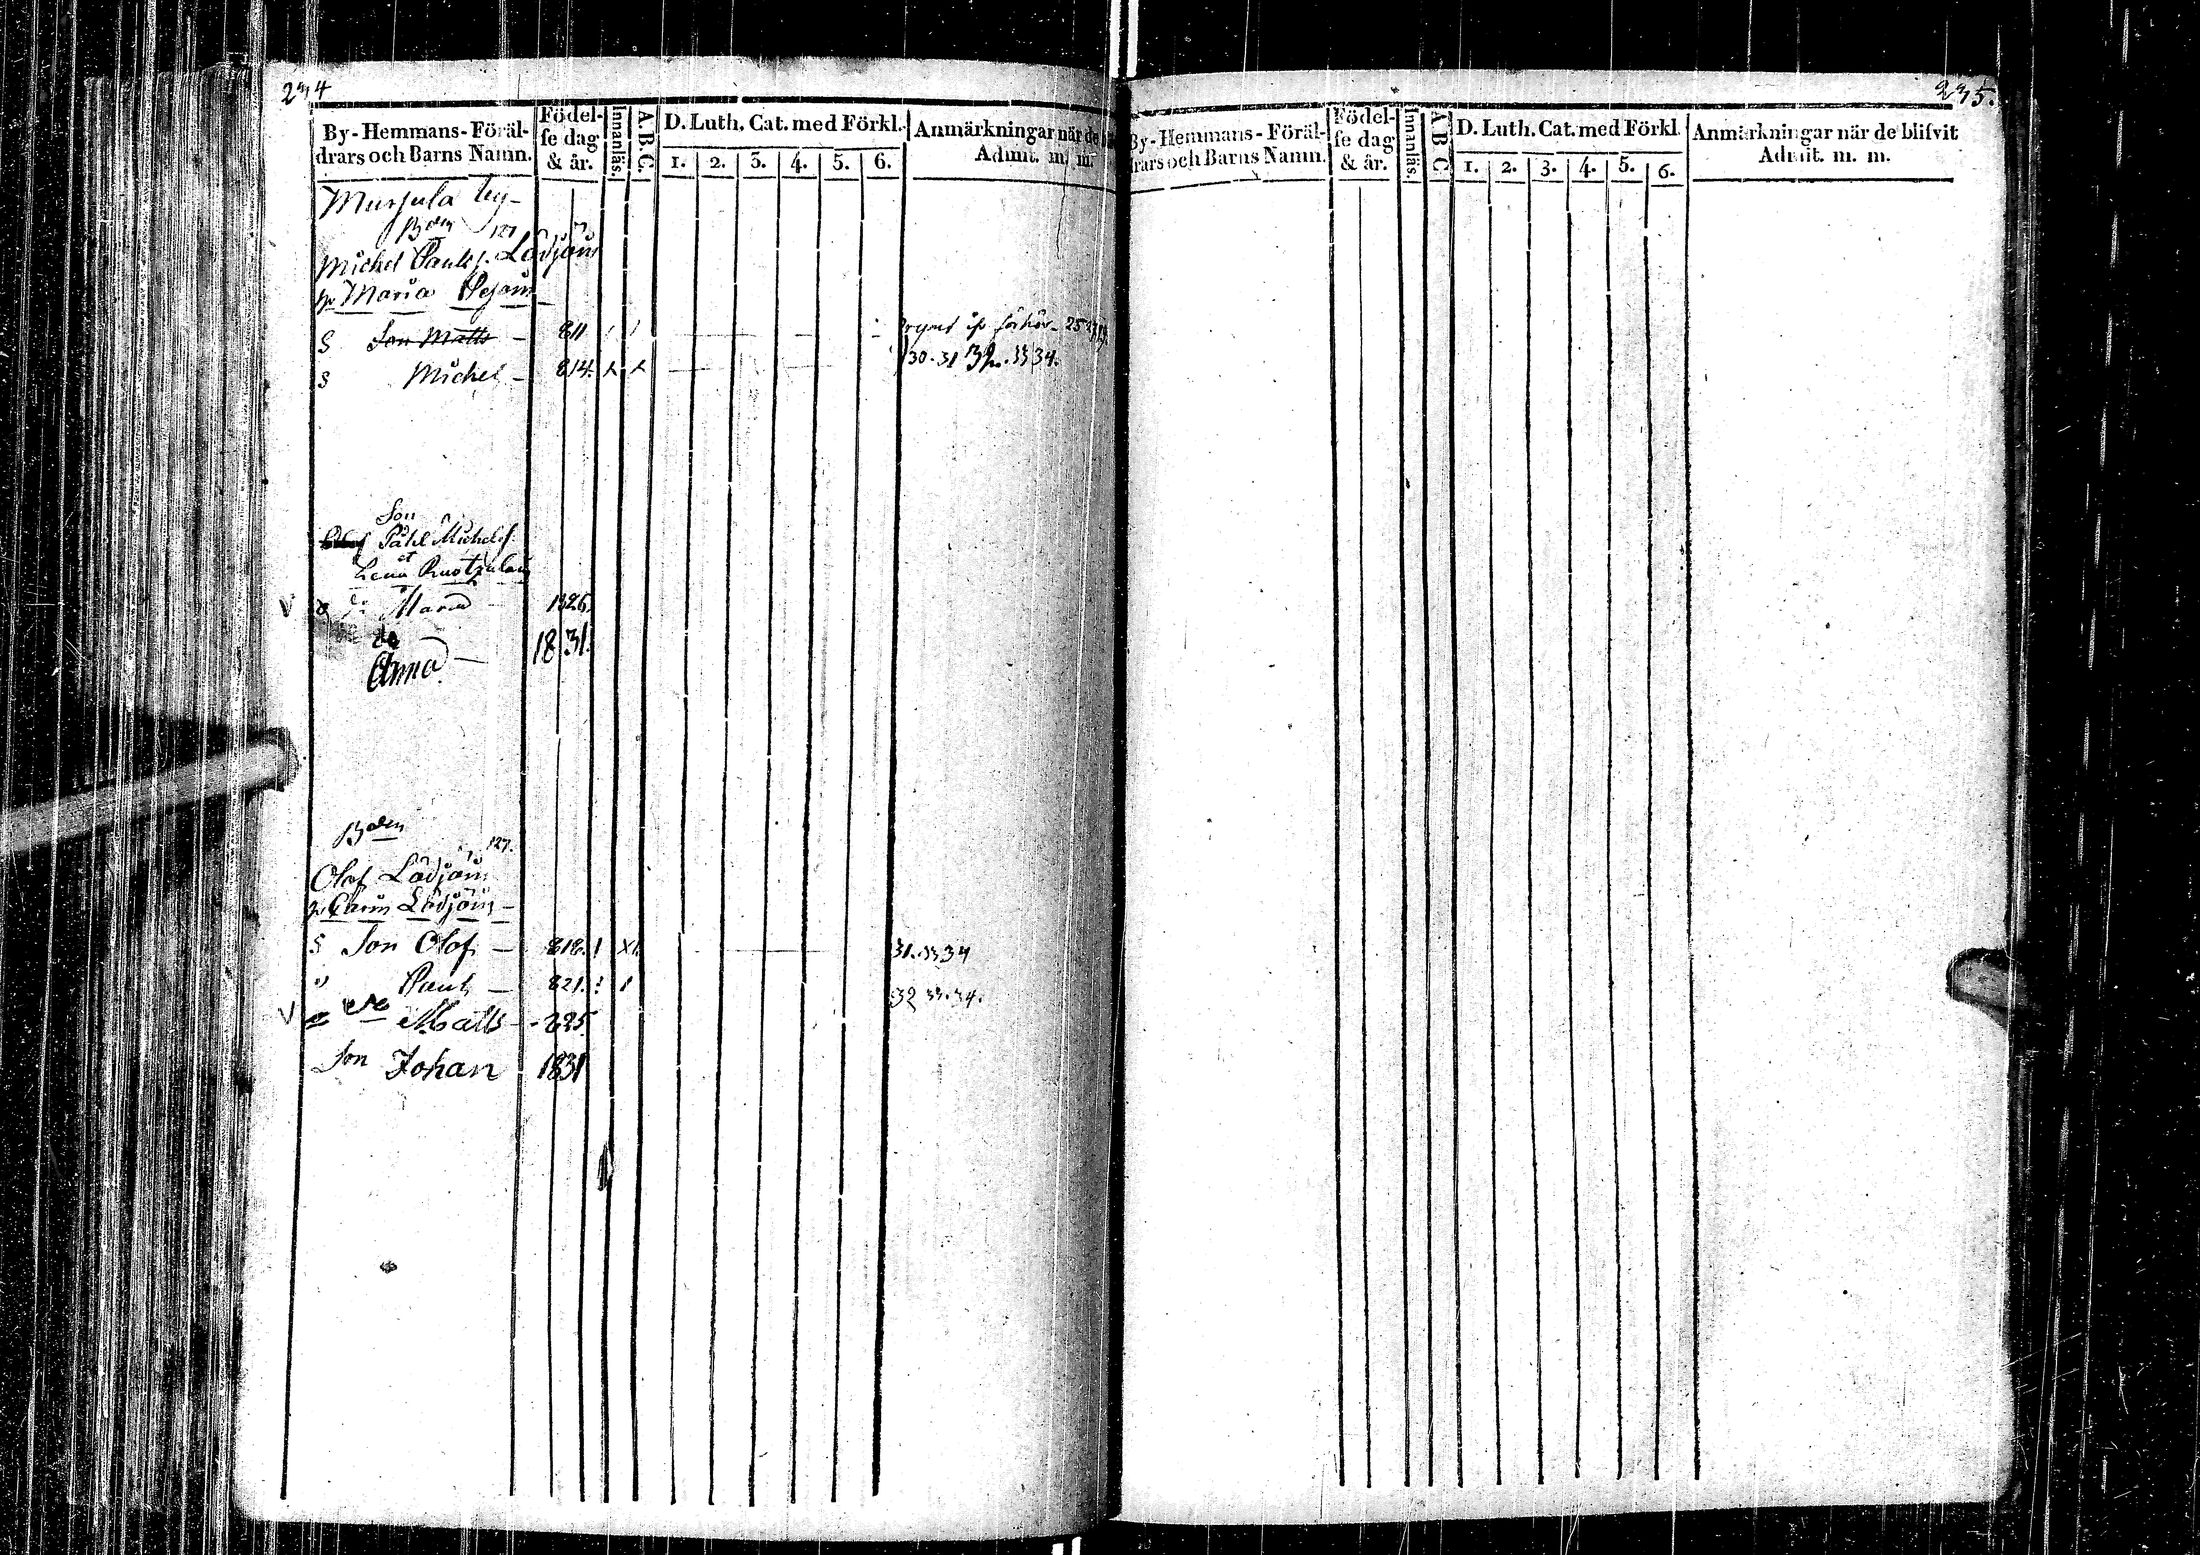 234
By-Hemmans-Föräl-
drars och Barns Namn.
Födel-
se dag
& år.
Innanläs.
A. B. C.
D. Luth. Cat. med Förkl.
1. 2. 3. 4. 5. 6.
Anmärkningar när de
Admit. m. m.
Mursula by
Bden
Michel Pauls. Lådjäin
Maria
Son Matts - 811
30. 31 32. 33 34.
Michel - 814.
Son
Påhl Michels.
et
Lena
Maria 1826.
Anna - 1831.
Bden
127.
Olof Lådjäin
Carin Lådjäin
Son Olof - 818. 31. 33 34
Paul - 821. 32 33. 34.
Matts - 825
Son Johan 1831
235.
By-Hemmans-Föräl-
drars och Barns Namn.
Födel-
se dag
& år.
Innanläs.
A B C
D. Luth. Cat. med Förkl.
1. 2. 3. 4. 5. 6.
Anmärkningar när de blifvit
Admit. m. m.